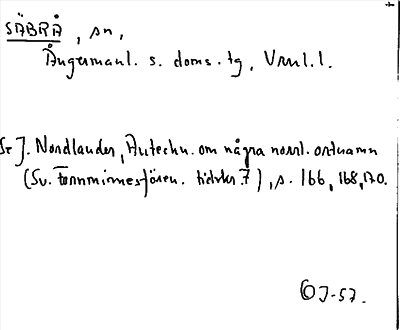 SÄBRÅ, sn,
Ångermanl. s. doms. tg, Vrnl. l.
Se J. Nordlander, Anteckn. om några norrl. ortnamn
(Sv. fornminnesfören. tidskr. 7), s. 166, 168, 170.
OJ-57.